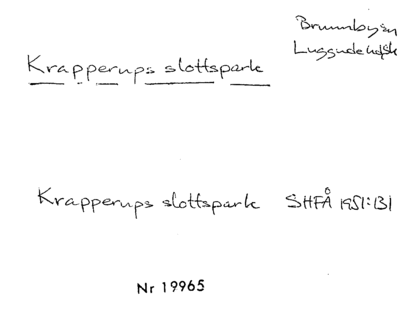 Brunnby sn
Luggude hd Sk
Krapperups slottspark
Krapperups slottspark SHFÅ 1951:131
Nr 19965